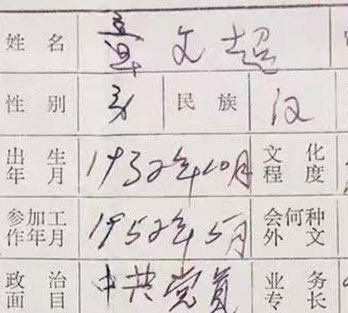 姓名 文超
性别 男 民族 汉
出生年月 1932年10月 文化程度
参加工作年月 1952年5月 会何种外文
政治面目 中共党员 业务专长